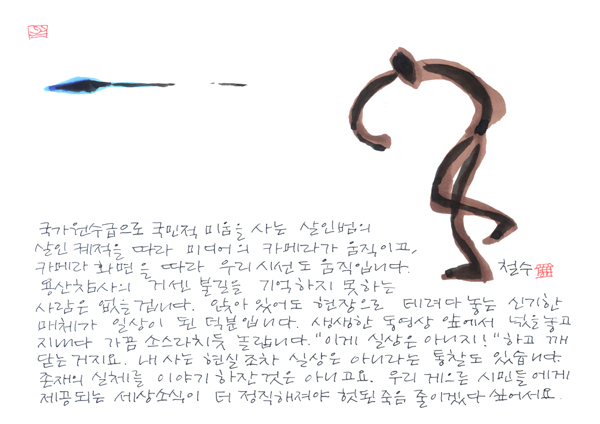 국가원수급으로 국민적 미움을 사는 살인범의
살인 궤적을 따라 미디어의 카메라가 움직이고,
카메라 화면을 따라 우리 시선도 움직입니다.
용산참사의 거센 불길을 기억하지 못하는
사람은 없을겁니다. 앉아 있어도 현장으로 데려다 놓는 신기한
매체가 일상이 된 덕분입니다. 생생한 동영상 앞에서 넋을놓고
지내다 가끔 소스라치듯 놀랍니다. "이게 실상은 아니지!" 하고 깨
닫는거지요. 내 사는 현실 조차 실상은 아니라는 통찰도 있습니다.
존재의 실체를 이야기 하잔 것은 아니고요. 우리 게으른 시민들에게
제공되는 세상소식이 더 정직해져야 헛된죽음 줄이겠다 싶어서요.
철수